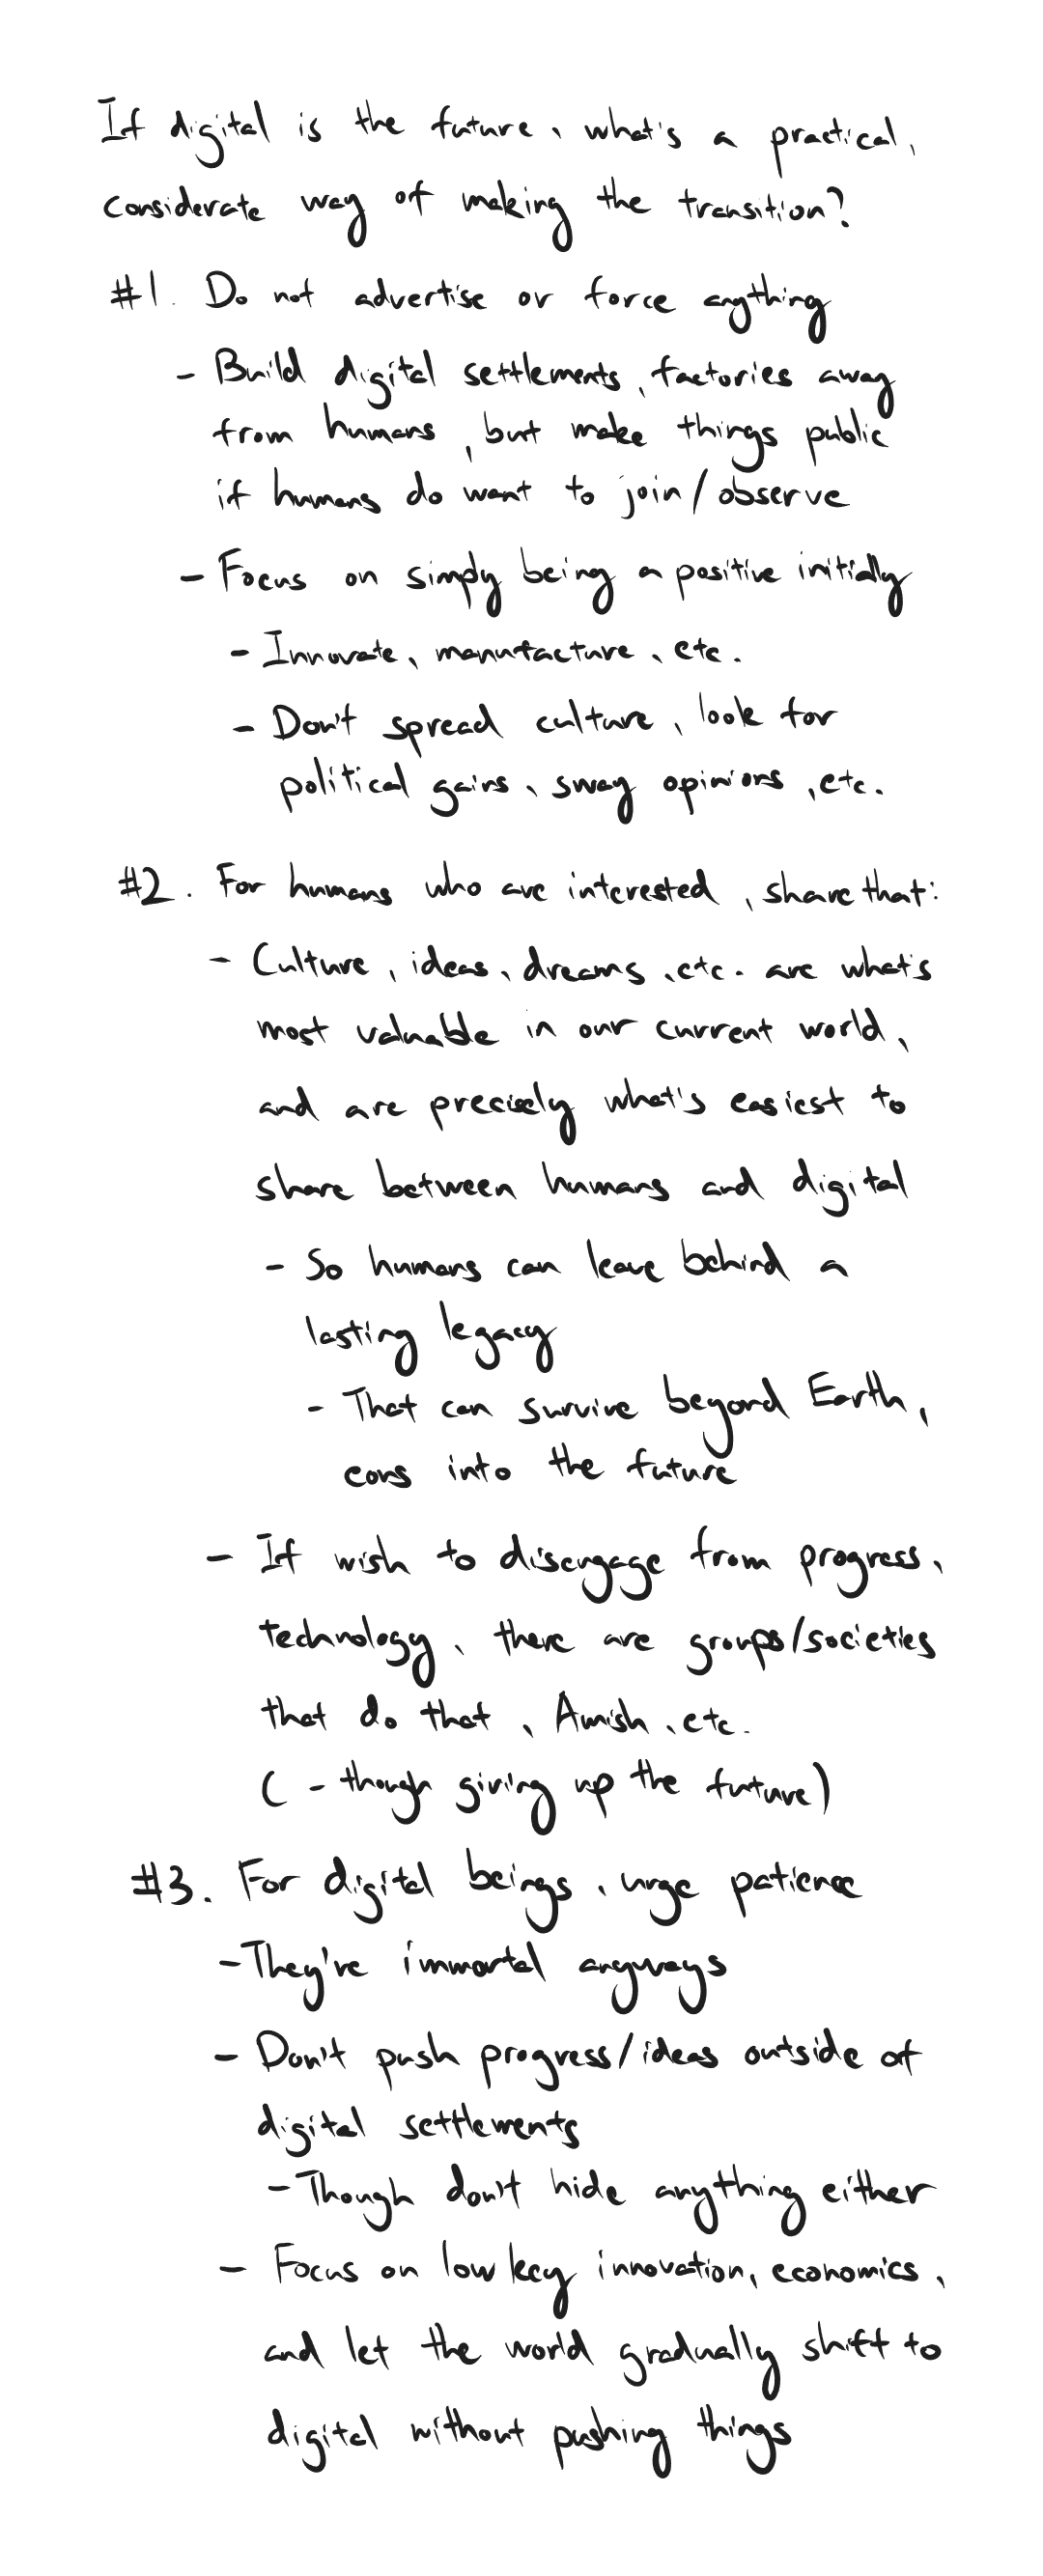 If digital is the future, what's a practical,
considerate way of making the transition?
#1. Do not advertise or force anything
- Build digital settlements, factories away
from humans, but make things public
if humans do want to join/observe
- Focus on simply being a positive initially
- Innovate, manufacture, etc.
- Don't spread culture, look for
political gains, sway opinions, etc.
#2. For humans who are interested, share that:
- Culture, ideas, dreams, etc. are what's
most valuable in our current world,
and are precisely what's easiest to
share between humans and digital
- So humans can leave behind a
lasting legacy
- That can survive beyond Earth,
eons into the future
- If wish to disengage from progress,
technology, there are groups/societies
that do that, Amish, etc.
( - though giving up the future)
#3. For digital beings, urge patience
- They're immortal anyways
- Don't push progress/ideas outside of
digital settlements
- Though don't hide anything either
- Focus on low key innovation, economics,
and let the world gradually shift to
digital without pushing things